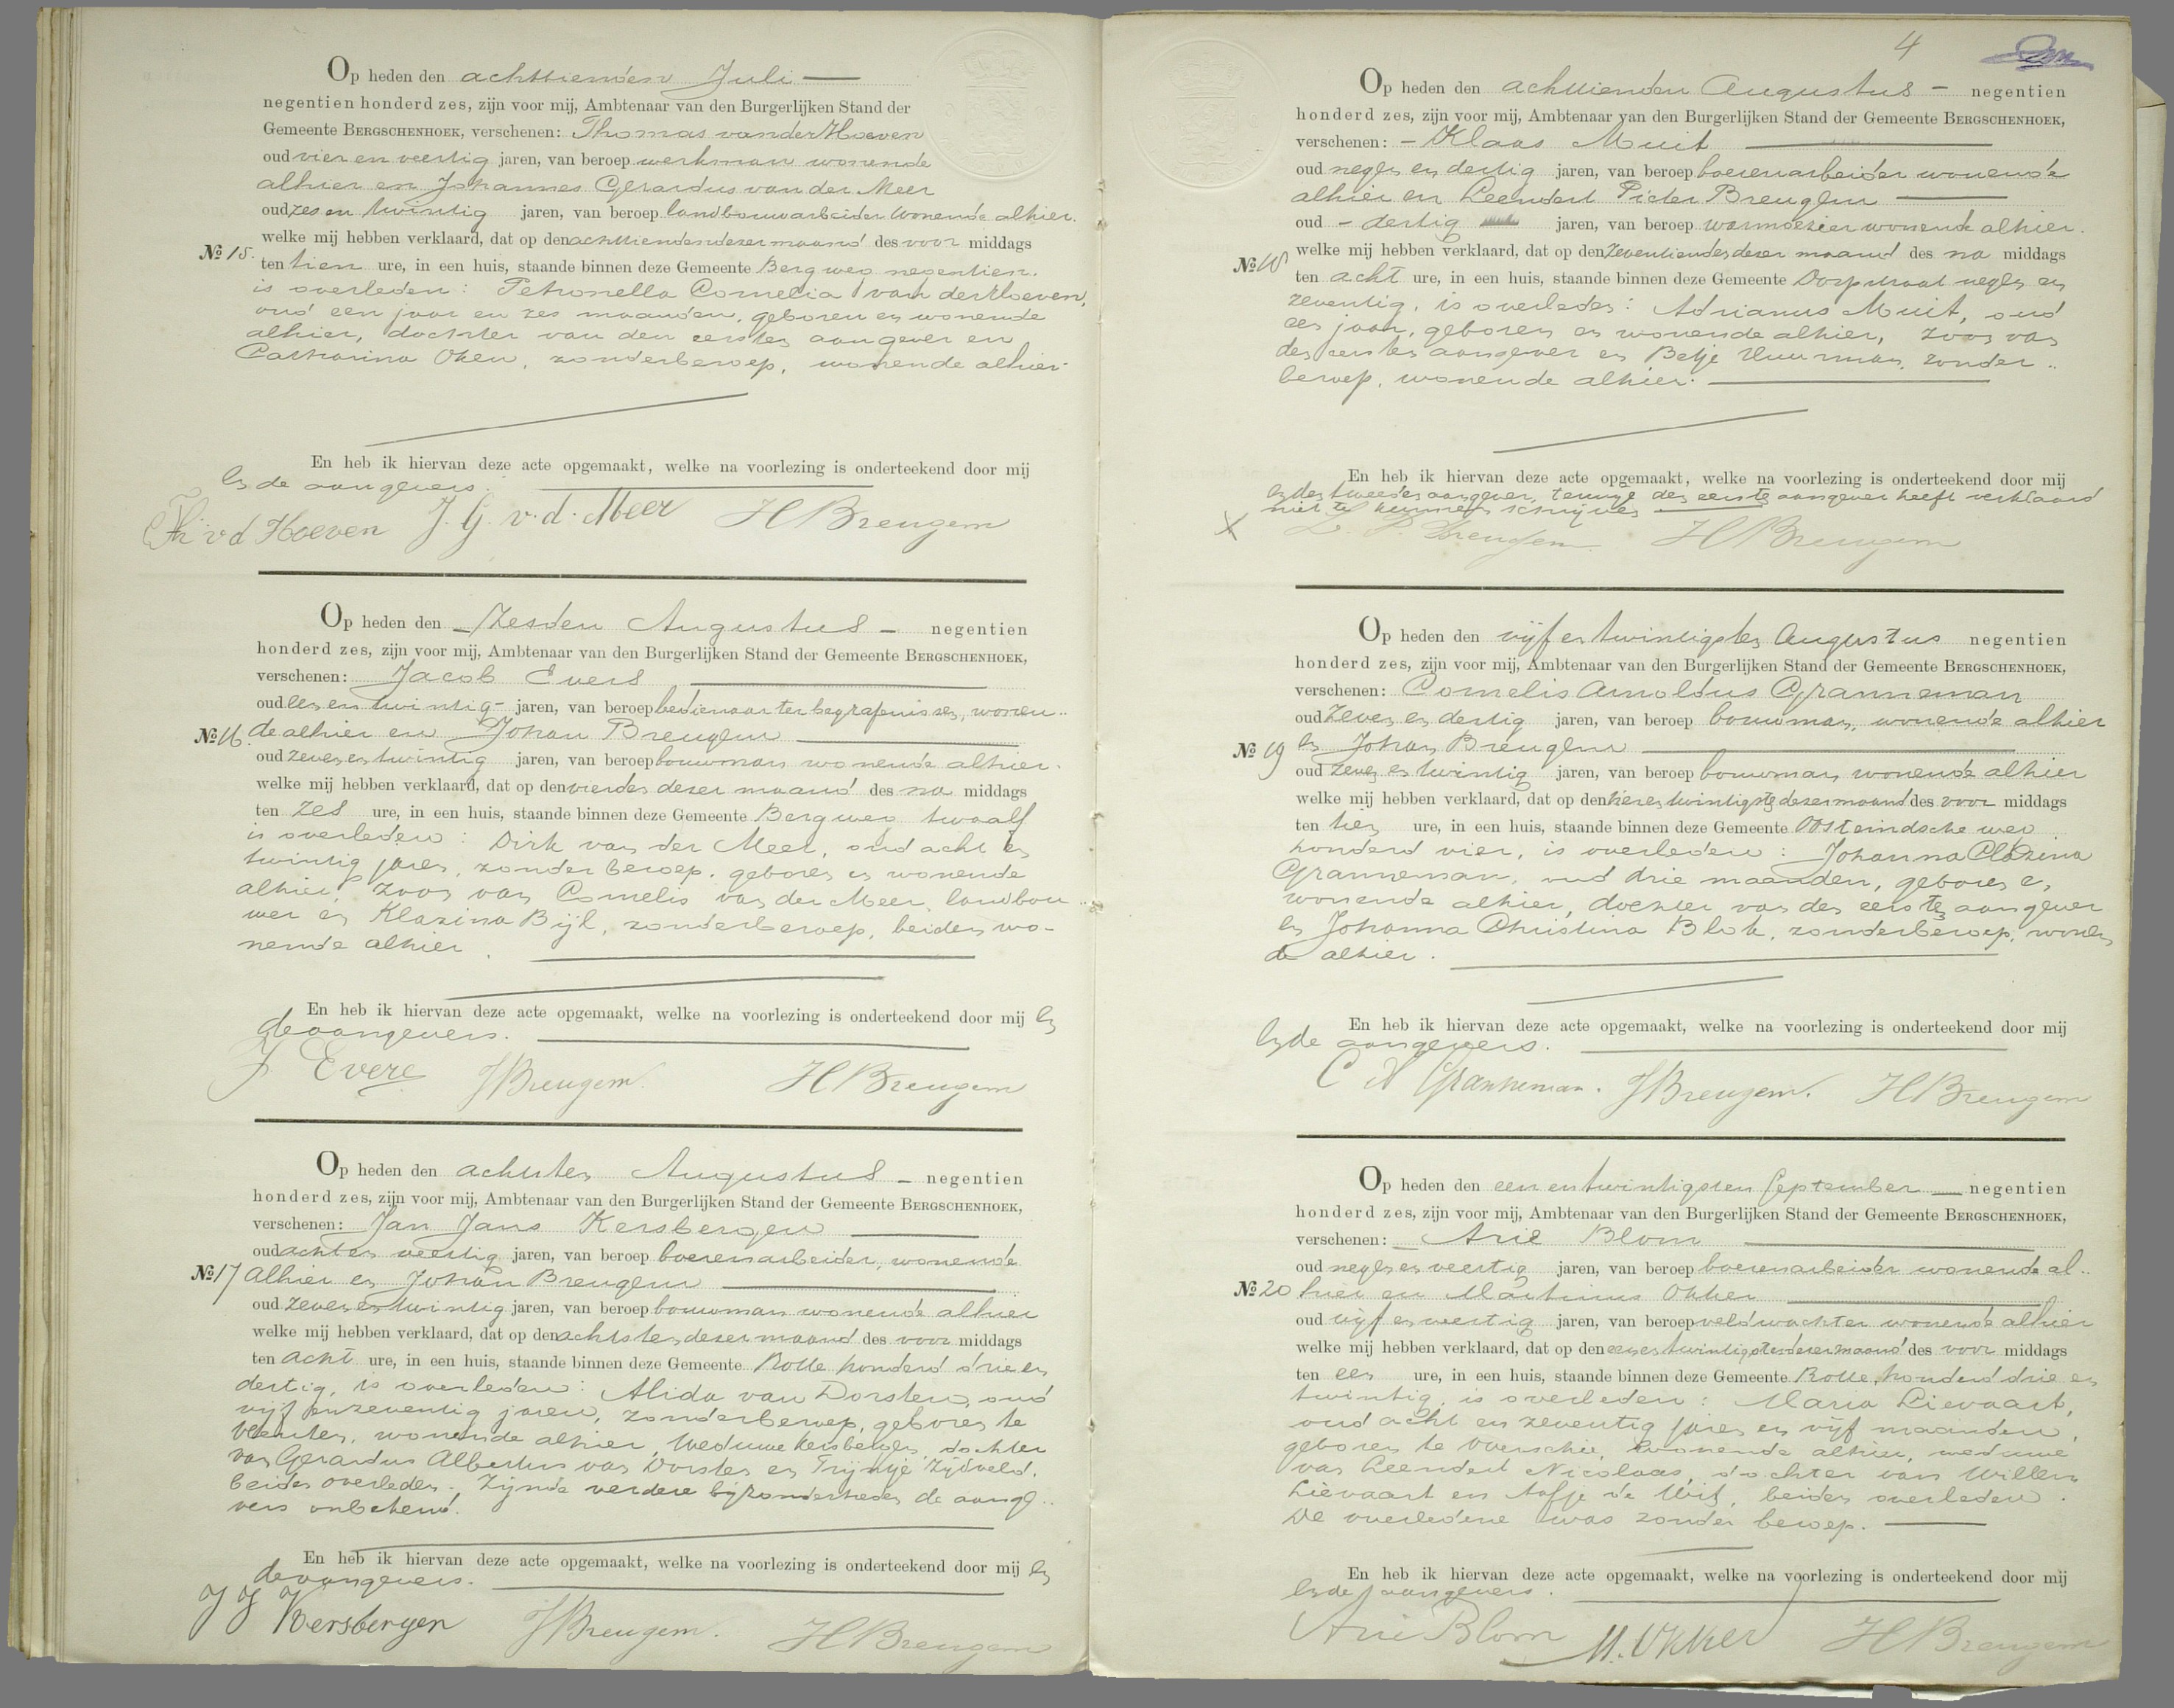 Op heden den achttienden Juli —
negentien honderd zes, zijn voor mij, Ambtenaar van den Burgerlijken Stand der
Gemeente BERGSCHENHOEK, verschenen: Thomas van der Hoeven
oud vier en veertig jaren, van beroep werkman wonende
alhier en Johannes Gerardus van der Meer
oud zes en twintig jaren, van beroep landbouwarbeider wonende alhier.
welke mij hebben verklaard, dat op den achttienden dezer maand des voor middags
No 15.
ten tien ure, in een huis, staande binnen deze Gemeente Bergweg negentien.
is overleden: Petronella Cornelia van der Hoeven,
oud een jaar en zes maanden, geboren en wonende
alhier, dochter van den eersten aangever en
Catharina Oken, zonder beroep, wonende alhier.
En heb ik hiervan deze acte opgemaakt, welke na voorlezing is onderteekend door mij
en de aangevers.
Th. v d Hoeven J. G. v. d. Meer H Breugem
Op heden den — Zesden Augustus — negentien
honderd zes, zijn voor mij, Ambtenaar van den Burgerlijken Stand der Gemeente BERGSCHENHOEK,
verschenen: Jacob Evers
oud een en twintig - jaren, van beroep bedienaar ter begrafenissen, wonen..
No 16. de alhier en Johan Breugem
oud zeven en twintig jaren, van beroep bouwman wonende alhier.
welke mij hebben verklaard, dat op den vierden dezer maand des na middags
ten zes ure, in een huis, staande binnen deze Gemeente Bergweg twaalf
is overleden: Dirk van der Meer, oud acht en
twintig jaren, zonder beroep. geboren en wonende
alhier, zoon van Cornelis van der Meer, landbou..
wer en Klazina Bijl, zonder beroep, beiden wo-
nende alhier.
En heb ik hiervan deze acte opgemaakt, welke na voorlezing is onderteekend door mij en
de aangevers.
J Evers J Breugem. H Breugem
Op heden den achtsten Augustus — negentien
honderd zes, zijn voor mij, Ambtenaar van den Burgerlijken Stand der Gemeente BERGSCHENHOEK,
verschenen: Jan Jans Kersbergen
oud acht en veertig jaren, van beroep boerenarbeider, wonende
No 17 alhier en Johan Breugem
oud zeven en twintig jaren, van beroep bouwman wonende alhier
welke mij hebben verklaard, dat op den achtsten dezer maand des voor middags
ten acht ure, in een huis, staande binnen deze Gemeente Rotte honderd drie en
dertig, is overleden: Alida van Dorsten, oud
vijf en zeventig jaren, zonder beroep, geboren te
Vleuten, wonende alhier, Weduwe Kersbergen, dochter
van Gerardus Albertus van Dorsten en Trijntje Zijdveld.
beiden overleden. Zijnde verdere bijzonderheden de aange..
vers onbekend.
En heb ik hiervan deze acte opgemaakt, welke na voorlezing is onderteekend door mij en
de aangevers.
J J Kersbergen J Breugem. H Breugem
4
Op heden den achttienden Augustus — negentien
honderd zes, zijn voor mij, Ambtenaar van den Burgerlijken Stand der Gemeente BERGSCHENHOEK,
verschenen: — Klaas Muit
oud negen en dertig jaren, van beroep boerenarbeider wonende
alhier en Leendert Pieter Breugem
oud - dertig jaren, van beroep warmoezier wonende alhier.
welke mij hebben verklaard, dat op den zeventienden dezer maand des na middags
No 18
ten acht ure, in een huis, staande binnen deze Gemeente Dorpstraat negen en
zeventig, is overleden: Adrianus Muit, oud
een jaar, geboren en wonende alhier, zoon van
den eersten aangever en Betje Vuurman, zonder..
beroep, wonende alhier.
En heb ik hiervan deze acte opgemaakt, welke na voorlezing is onderteekend door mij
en den tweeden aangever, terwijl den eersten aangever heeft verklaard
niet te kunnen schrijven
X L. P. Breugem. H Breugem
Op heden den vijf en twintigsten Augustus negentien
honderd zes, zijn voor mij, Ambtenaar van den Burgerlijken Stand der Gemeente BERGSCHENHOEK,
verschenen: Cornelis Arnoldus Granneman
oud zeven en dertig jaren, van beroep bouwman, wonende alhier
No 19 en Johan Breugem
oud zeven en twintig jaren, van beroep bouwman wonende alhier
welke mij hebben verklaard, dat op den vier en twintigsten dezer maand des voor middags
ten tien ure, in een huis, staande binnen deze Gemeente Oosteindsche weg
honderd vier, is overleden: Johanna Clazina
Granneman, oud drie maanden, geboren en
wonende alhier, dochter van den eersten aangever
en Johanna Christina Blok, zonder beroep, wonen
de alhier.
En heb ik hiervan deze acte opgemaakt, welke na voorlezing is onderteekend door mij
en de aangevers.
C A Granneman. J Breugem. H Breugem
Op heden den een en twintigsten September — negentien
honderd zes, zijn voor mij, Ambtenaar van den Burgerlijken Stand der Gemeente BERGSCHENHOEK,
verschenen: — Arie Blom
oud negen en veertig jaren, van beroep boerenarbeider wonende al..
No 20 hier en Martinus Okker
oud vijf en veertig jaren, van beroep veldwachter wonende alhier
welke mij hebben verklaard, dat op den een en twintigsten dezer maand des voor middags
ten een ure, in een huis, staande binnen deze Gemeente Rotte, honderd drie en
twintig, is overleden: Maria Lievaart,
oud acht en zeventig jaren en vijf maanden,
geboren te Overschie, wonende alhier, weduwe
van Leendert Nicolaas, dochter van Willem
Lievaart en Aafje de Wit, beiden overleden.
De overledene was zonder beroep.
En heb ik hiervan deze acte opgemaakt, welke na voorlezing is onderteekend door mij
en de aangevers.
Arie Blom M. Okker H Breugem